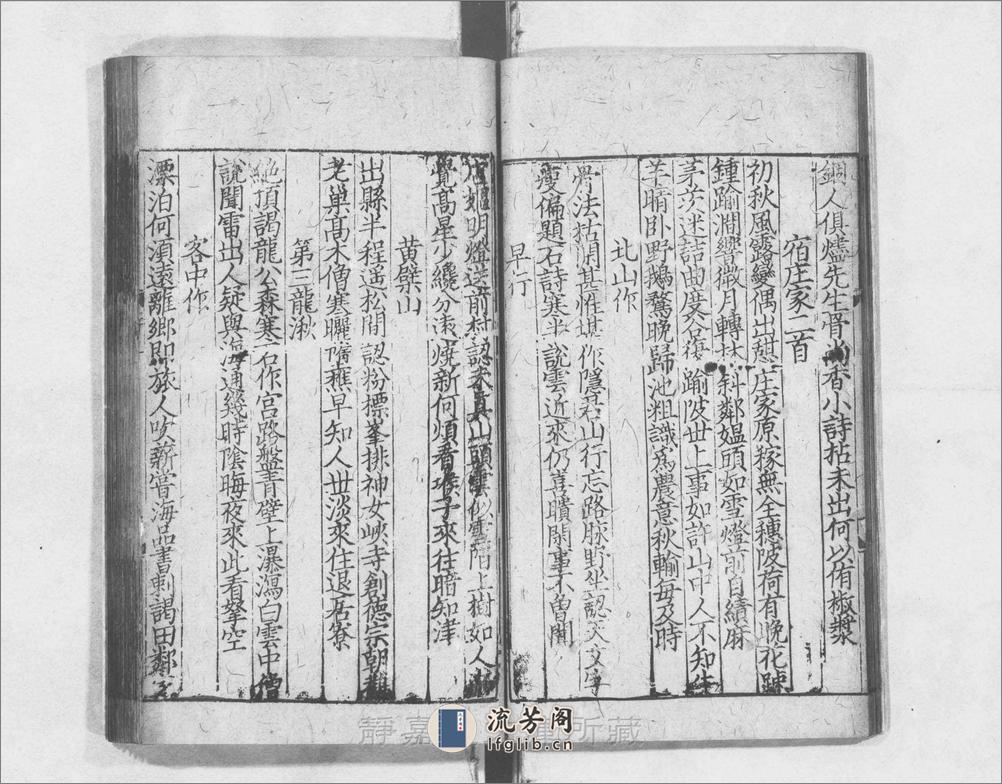 銅人俱爐先生骨尚香小詩拈未出何以侑椒漿
宿庄家二首
初秋風露變偶出憇庄家原稼無全穗陂荷有晚花踈
鍾踰澗響微月轉林斜鄰媪頭如雪燈前自績麻
茅茨迷詰曲度谷復踰陂世上事如許山中人不知牛
羊暗卧野鵝鶩晚歸池粗識爲農意秋輸每及時
北山作
骨法枯閑甚惟堪作隱君山行忘路脉野坐認天文字
瘦偏題石詩寒半說雲近來仍喜聵閑事不曾聞
早行
店媪明燈送前村認未真山頭雲似雪陌上樹如人漸
覺高星少纔分遠燒新何煩看堠子來往暗知津
黄檗山
出縣半程遥松間認粉標峯排神女峽寺創德宗朝
老巢高木僧寒曬墮樵早知人世淡來住退居寮
第三龍湫
絶頂謁龍公森寒石作宫路盤青壁上瀑瀉白雲中僧
說聞雷出人疑與海通幾時陰晦夜來此看拏空
客中作
漂泊何湏遠離鄉即旅人炊薪嘗海品書刺謁田鄰
靜嘉 所藏
流芳阁
lfglib.cn